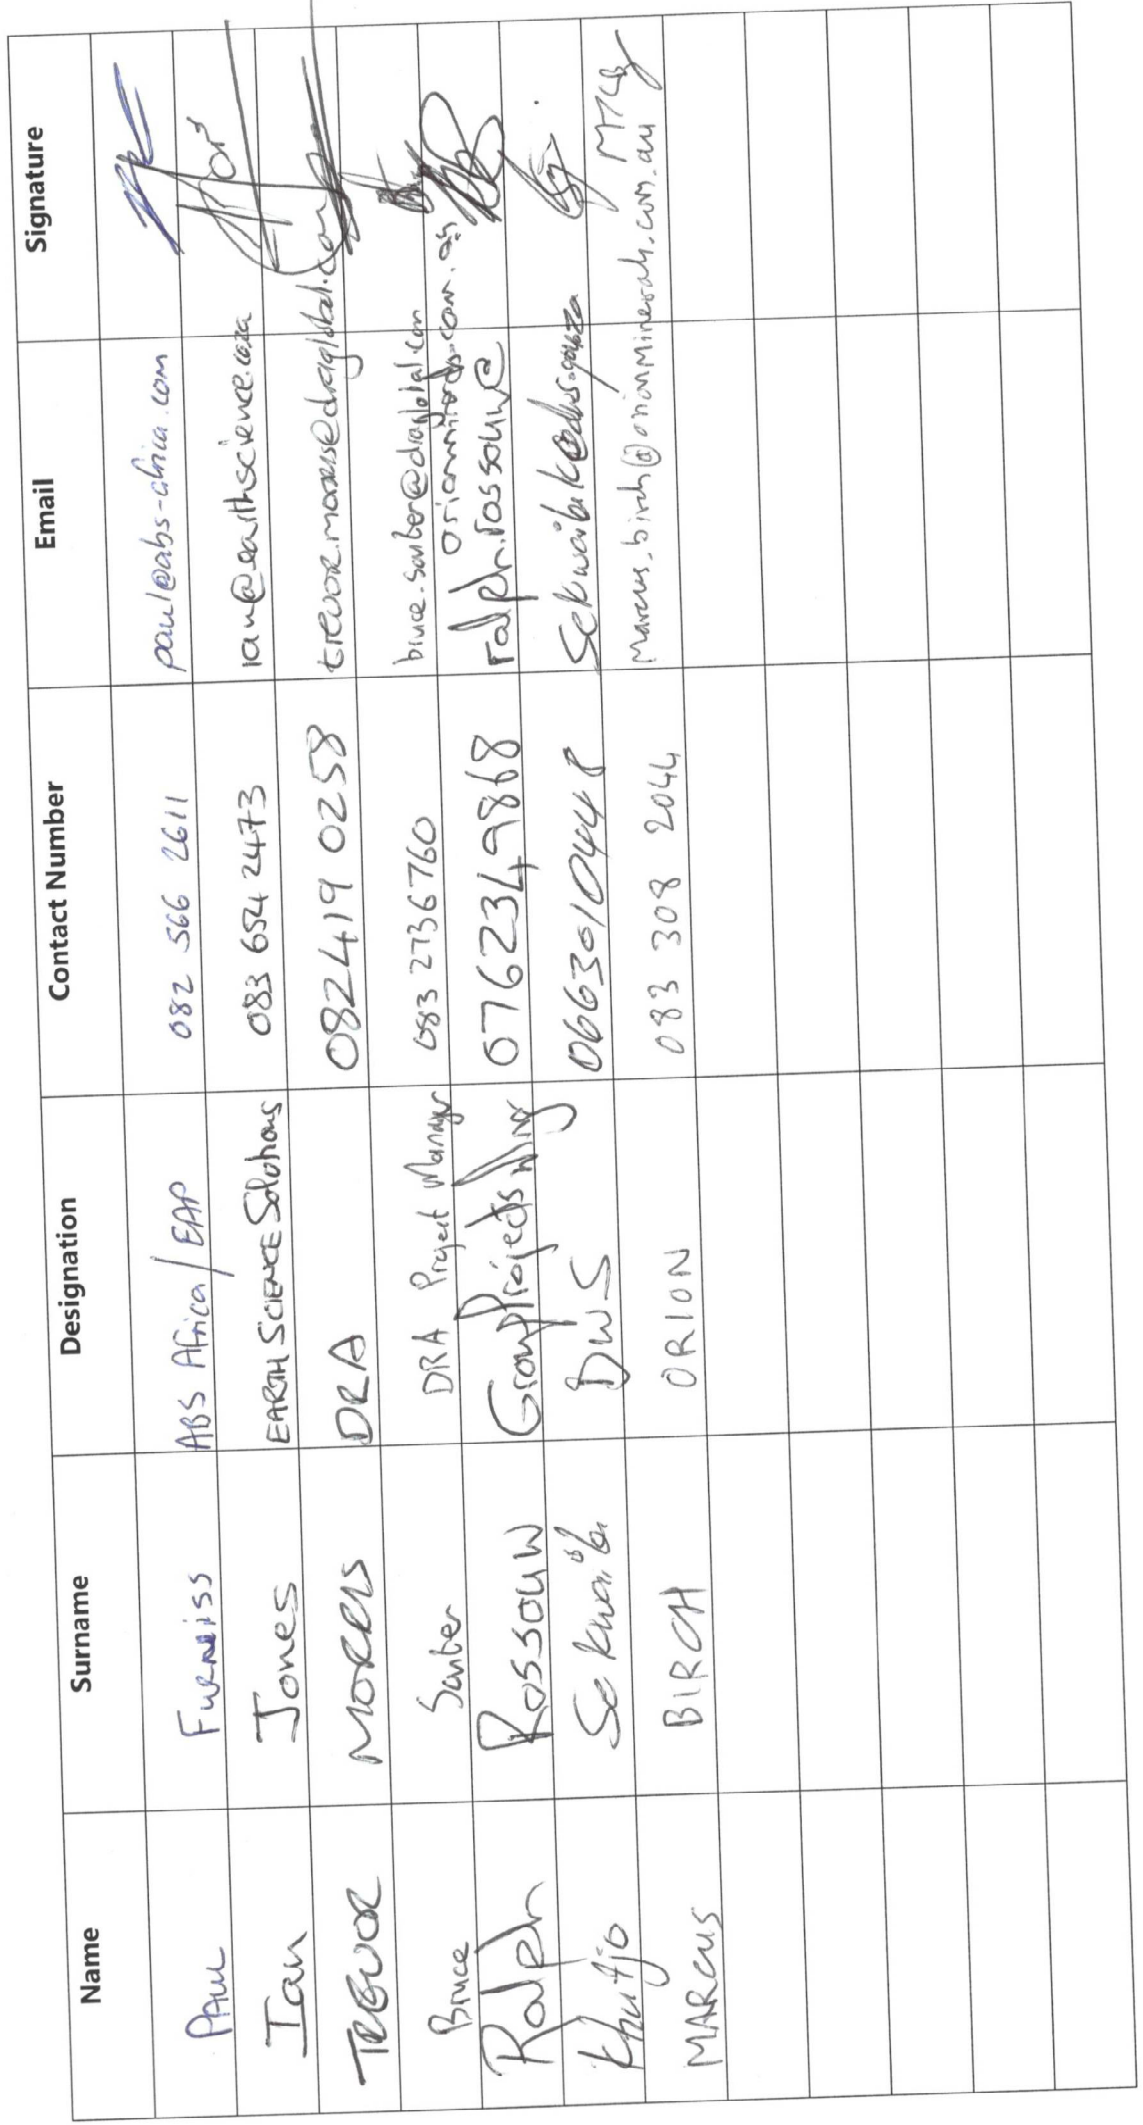 Name Surname Designation Contact Number Email Signature
PAUL Furniss ABS Africa/EAP 082 566 2611 paul@abs-africa.com
Ian Jones EARTH SCIENCE Solutions 083 654 2473 ian@earthscience.co.za
TREVOR MORRIS DRA 082419 0258 trevor.morris@draglobal.com
Bruce Sauber DRA Project Manager 083 2736760 bruce.sauber@draglobal.com
Ralph Rossouw Group Projects Mngr 0762349868 ralph.rossouw@
orionminerals.com.au
Khutjo Sekwaila DWS 0663010448
MARCUS BIRCH ORION 083 308 2044 marcus.birch@orionminerals.com.au